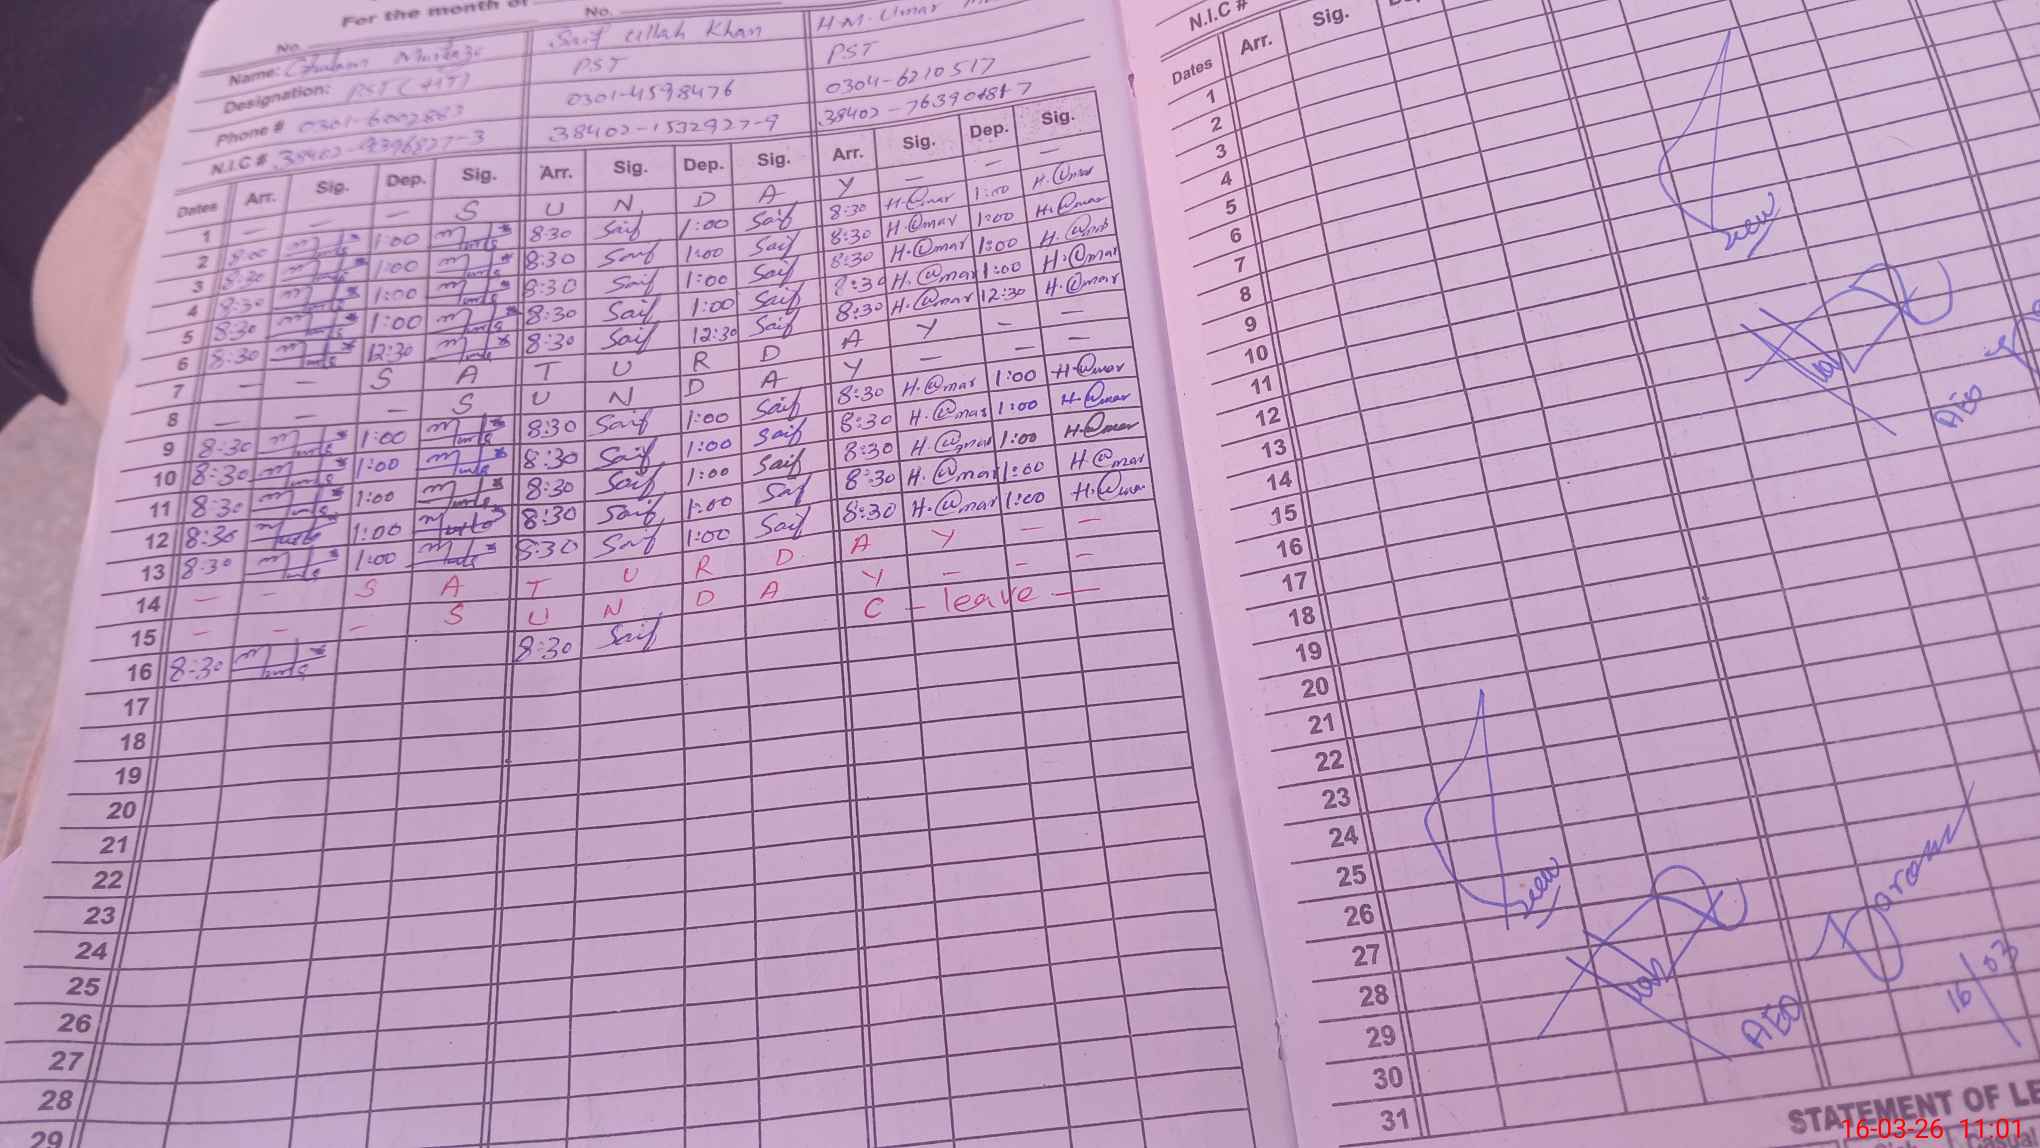 For the month of
No. No.
Name: Ghulam Murtaza Saif Ullah Khan H.M. Umar
Designation: PST (HT) PST PST
Phone # 0301-6002883 0301-4598476 0304-6210517
N.I.C # 38402-1532927-9
Dates Arr. Sig. Dep. Sig. Arr. Sig. Dep. Sig. Arr. Sig. Dep. Sig.
1 — — — S U N D A Y — — —
2 8:00 1:00 8:30 Saif 1:00 Saif 8:30 H.Umar 1:00 H.Umar
3 8:30 1:00 8:30 Saif 1:00 Saif 8:30 H.Umar 1:00 H.Umar
4 8:30 1:00 8:30 Saif 1:00 Saif 8:30 H.Umar 1:00 H.Umar
5 8:30 1:00 8:30 Saif 1:00 Saif 8:30 H.Umar 1:00 H.Umar
6 8:30 12:30 8:30 Saif 12:30 Saif 8:30 H.Umar 12:30 H.Umar
7 — — S A T U R D A Y — —
8 — — — S U N D A Y — — —
9 8:30 1:00 8:30 Saif 1:00 Saif 8:30 H.Umar 1:00 H.Umar
10 8:30 1:00 8:30 Saif 1:00 Saif 8:30 H.Umar 1:00 H.Umar
11 8:30 1:00 8:30 Saif 1:00 Saif 8:30 H.Umar 1:00 H.Umar
12 8:30 1:00 8:30 Saif 1:00 Saif 8:30 H.Umar 1:00 H.Umar
13 8:30 1:00 8:30 Saif 1:00 Saif 8:30 H.Umar 1:00 H.Umar
14 — — S A T U R D A Y — —
15 — — — S U N D A Y — — —
16 8:30 8:30 Saif C — leave —
17
18
19
20
21
22
23
24
25
26
27
28
29
N.I.C #
Dates Arr. Sig.
1
2
3
4
5
6
7
8
9
10
11
12
13
14
15
16
17
18
19
20
21
22
23
24
25
26
27
28
29
30
31
Seen
AEO
Seen
AEO
16/03
STATEMENT OF LE
16-03-26 11:01